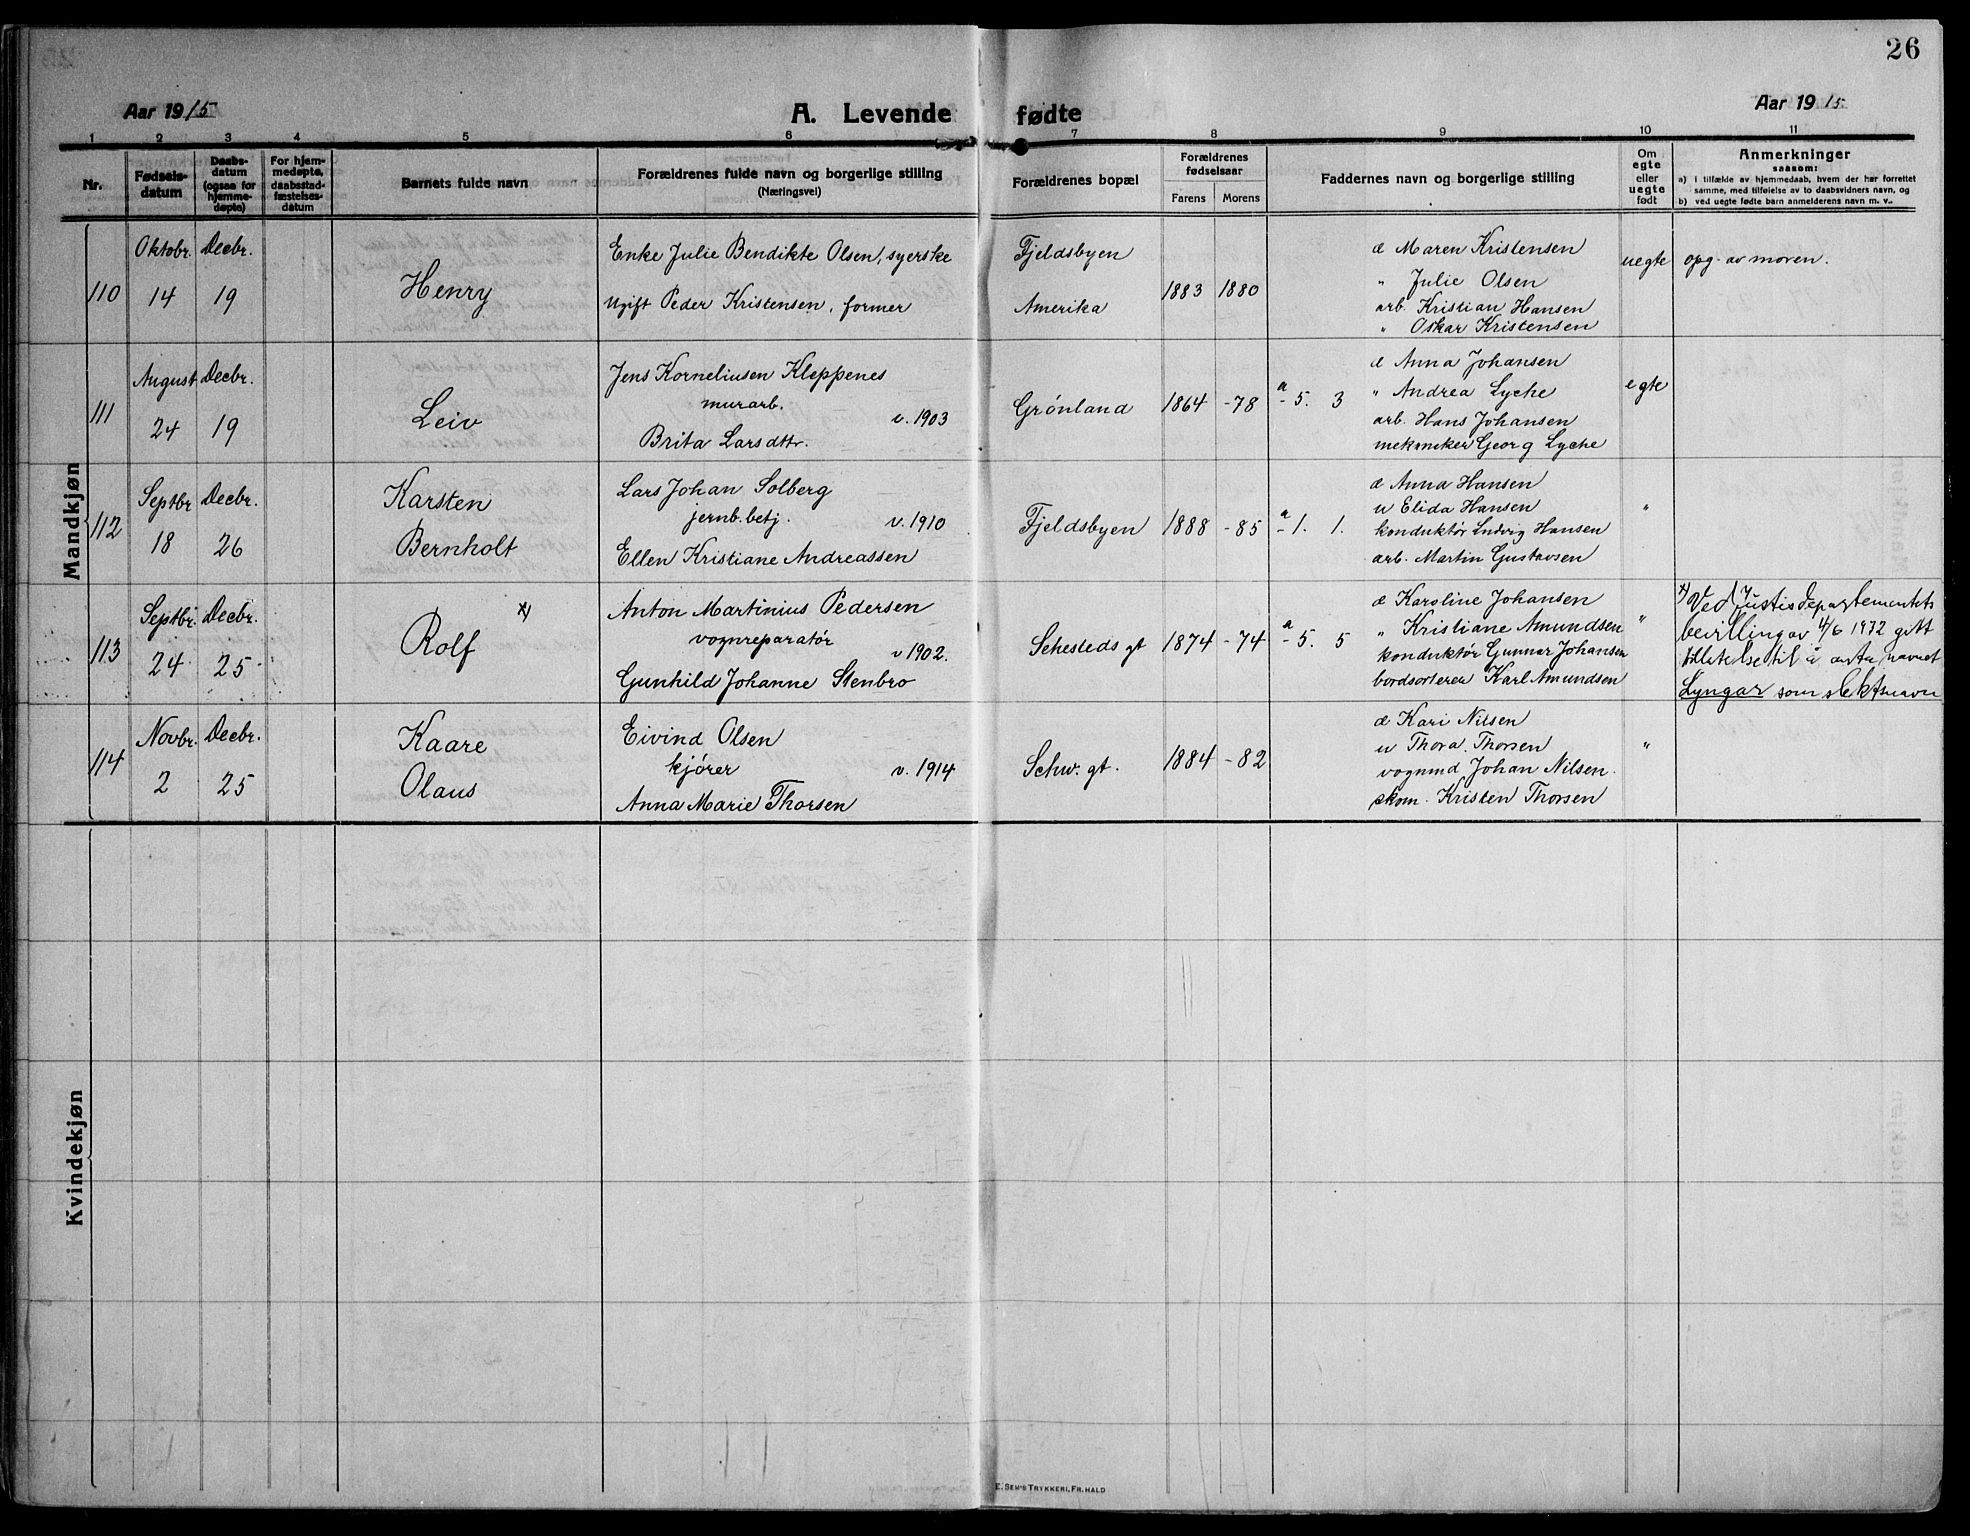 26
Aar 1915
A. Levende fødte
Aar 1915
1 2 3 4 5 6 7 8 9 10 11
Nr.
Fødsels-
datum
Daabs-
datum
(ogsaa for
hjemme-
døpte)
For hjem-
medøpte,
daabsstad-
fæstelses-
datum
Barnets fulde navn
Forældrenes fulde navn og borgerlige stilling
(Næringsvei)
Forældrenes bopæl
Forældrenes
fødselsaar
Farens Morens
Faddernes navn og borgerlige stilling
Om
egte
eller
uegte
født
Anmerkninger
saasom:
a) i tilfælde av hjemmedaab, hvem der har forrettet
samme, med tilføielse av to daabsvidners navn, og
b) ved uegte fødte barn anmelderens navn m. v..
Mandkjøn
110
Oktobr.
14
Decbr.
19
Henry
Enke Julie Bendikte Olsen, syerske
Ugift Peder Kristensen, former
Fjeldsbyen
Amerika
1883 1880
d Maren Kristensen
" Julie Olsen
arb. Kristian Hansen
" Oskar Kristensen
uegte
opg. av moren.
111
August
24
Decbr.
19
Leiv
Jens Korneliusen Kleppenes
murarb.
v. 1903
Brita Larsdttr.
Grønland
1864 -78
a
- 5. 3
d Anna Johansen
" Andrea Lyche
arb. Hans Johansen
mekaniker Georg Lyche
egte
112
Septbr
18
Decbr.
26
Karsten
Bernholt
Lars Johan Solberg
jernb.betj.
v. 1910
Ellen Kristiane Andreassen
Fjeldsbyen
1888 -85
a
- 1. 1.
d Anna Hansen
u Elida Hansen
konduktør Ludvig Hansen
arb. Martin Gustavsen
"
113
Septbr.
24
Decbr.
25
Rolf x)
Anton Martinius Pedersen
vognreparatør
v 1902.
Gunhild Johanne Stenbro
Schesteds gt
1874 -74
a
- 5. 5
d Karoline Johansen
" Kristiane Amundsen
konduktør Gunnar Johansen
bordsorterer Karl Amundsen
"
x) Ved Justisdepartementets
bevilling av 4/6 1932 gitt
tillatelse til å anta navnet
Lyngar som slektsnavn
114
Novbr.
2
Decbr.
25
Kaare
Olaus
Eivind Olsen
kjører
v. 1914
Anna Marie Thorsen
Schw. gt.
1884 -82
d Kari Nilsen
u Thora Thorsen
vognmd Johan Nilsen.
skom. Kristen Thorsen
"
Kvindekjøn
E. SEM'S TRYKKERI, FR.HALD